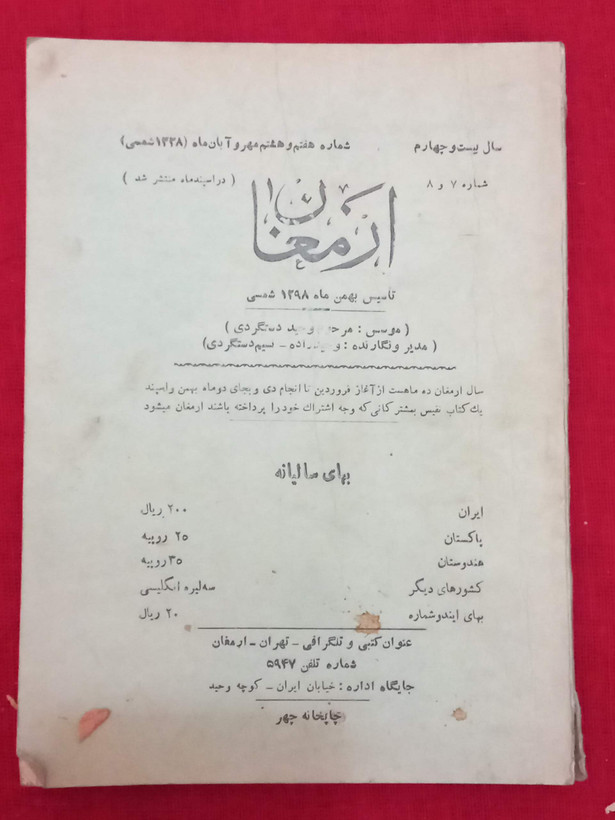 سال بیست و چهارم شماره هفتم و هشتم مهر و آبان ماه (۱۳۳۸ شمسی)
شماره ۷ و ۸ (در اسپندماه منتشر شد)
ارمغان
تأسیس بهمن ماه ۱۲۹۸ شمسی
(موسس : مرحوم وحید دستگردی)
(مدیر ونگارنده : وحیدزاده - نسیم دستگردی)
سال ارمغان ده ماهست از آغاز فروردین تا انجام دی و بجای دوماه بهمن واسپند
یك کتاب نفیس بمشترکانی که وجه اشتراك خودرا پرداخته باشند ارمغان میشود
بهای سالیانه
ایران ۲۰۰ ریال
پاکستان ۲۵ روپیه
هندوستان ۳۵ روپیه
کشورهای دیگر سه لیره انگلیسی
بهای ایندو شماره ۲۰ ریال
عنوان کتبی و تلگرافی - تهران - ارمغان
شماره تلفن ۵۹۴۷
جایگاه اداره : خیابان ایران - کوچه وحید
چاپخانه چهر